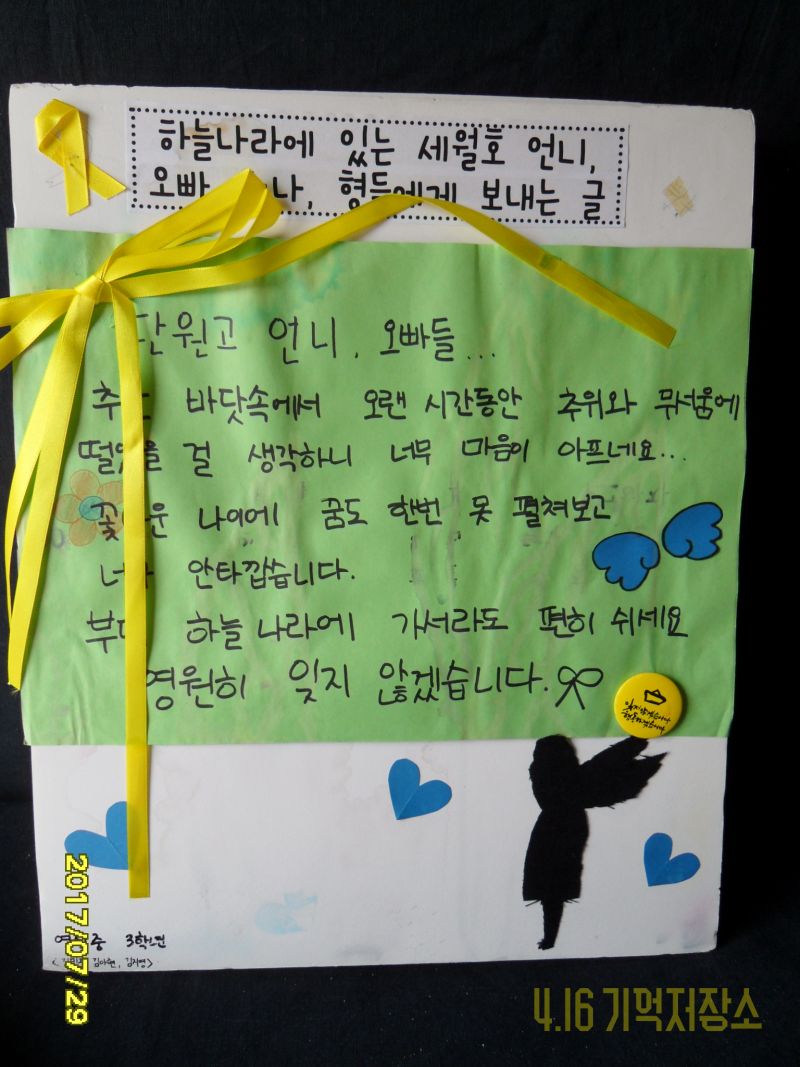 하늘나라에 있는 세월호 언니,
오빠 나, 형들에게 보내는 글
단원고 언니, 오빠들...
바닷속에서 오랜 시간동안 추위와 무서움에
떨었을 걸 생각하니 너무 마음이 아프네요...
나이에 꿈도 한번 못 펼쳐보고
안타깝습니다.
하늘나라에 가서라도 편히 쉬세요
영원히 잊지 않겠습니다.
잊지않겠습니다
행동하겠습니다
3학년
김지영>
2017/07/29
4.16 기억저장소